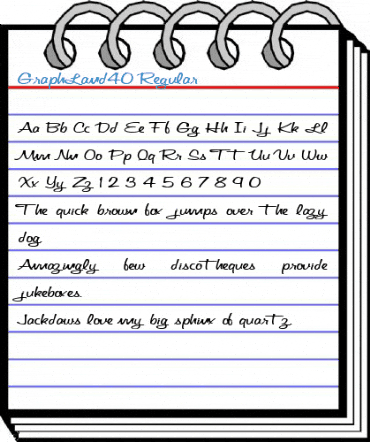 GraphLand40 Regular
Aa Bb Cc Dd Ee Ff Gg Hh Ii Jj Kk Ll
Mm Nn Oo Pp Qq Rr Ss Tt Uu Vv Ww
Xx Yy Zz 1 2 3 4 5 6 7 8 9 0
The quick brown fox jumps over the lazy
dog.
Amazingly few discotheques provide
jukeboxes.
Jackdaws love my big sphinx of quartz.